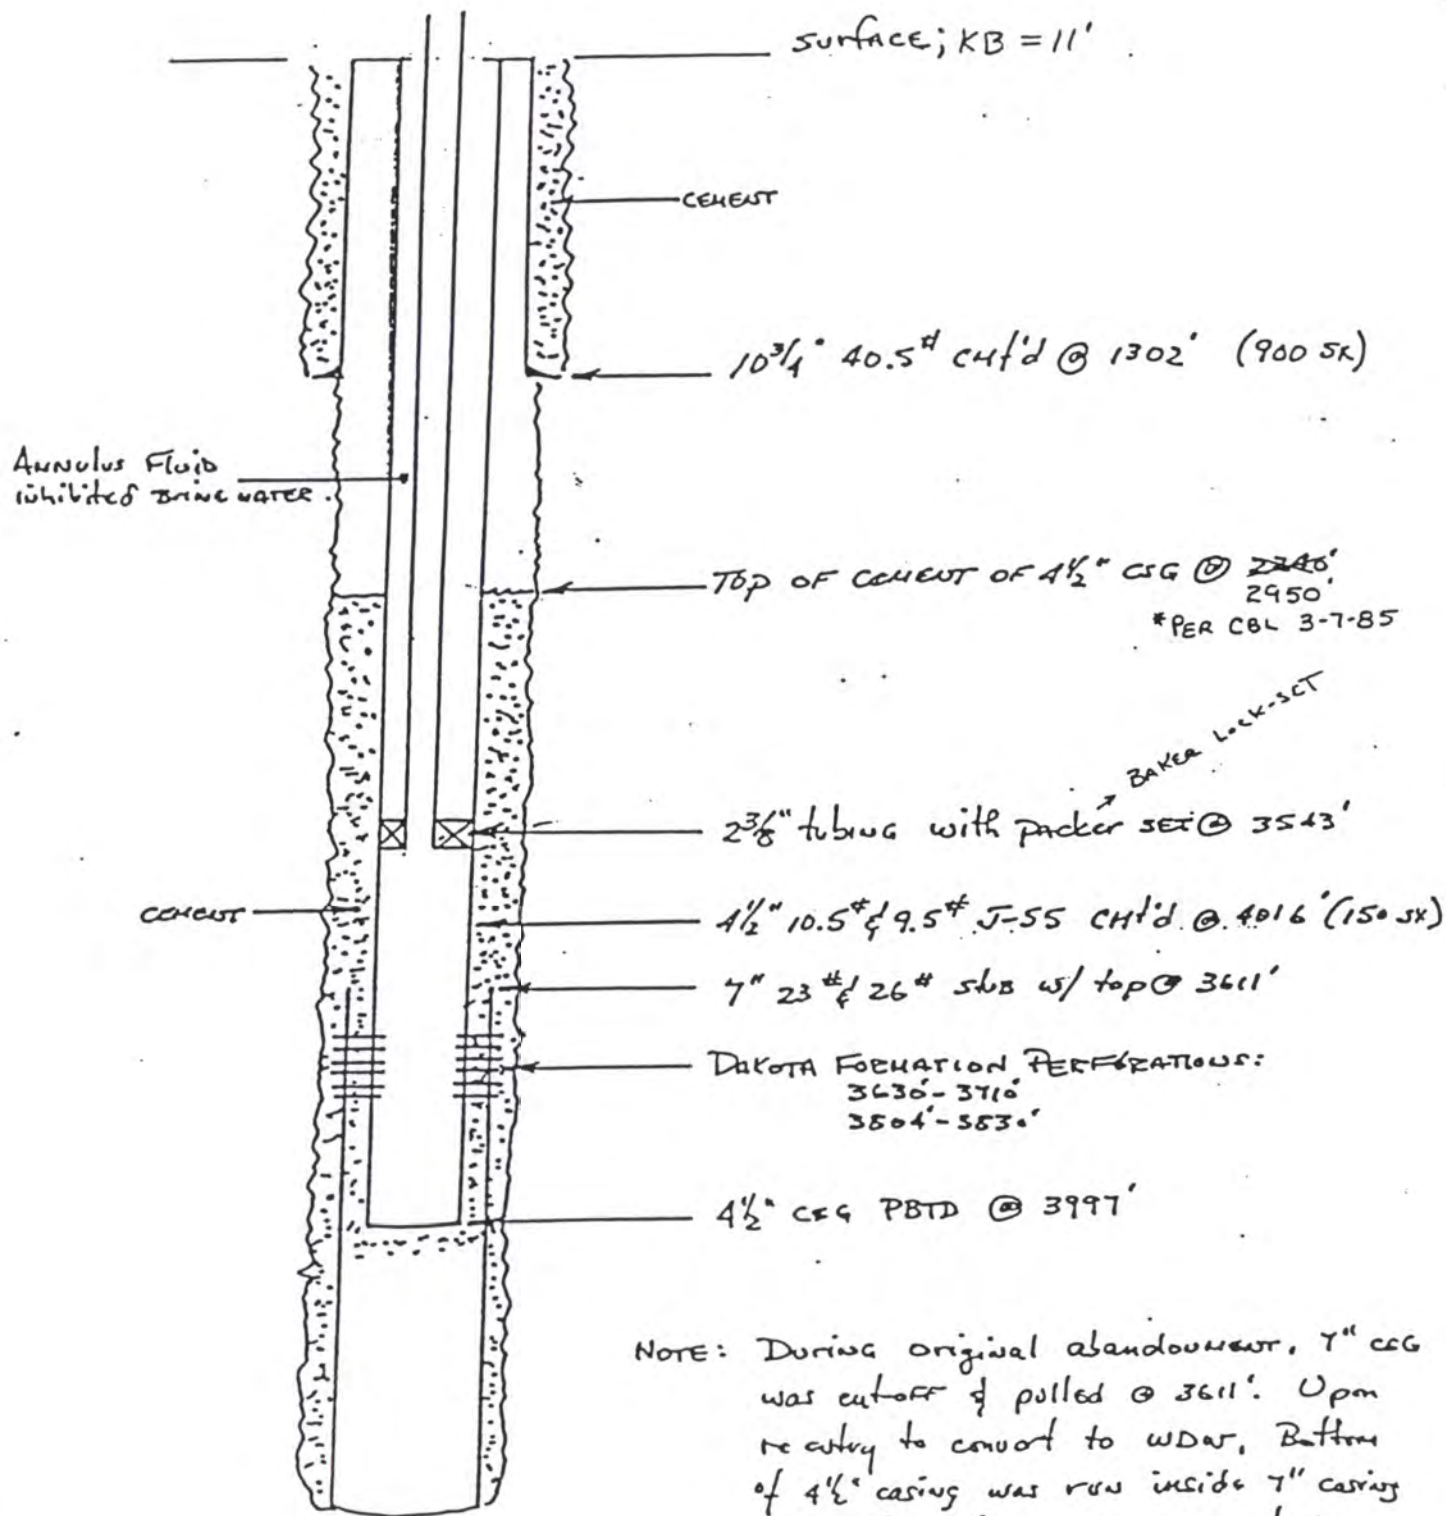 SURFACE; KB = 11'
CEMENT
10 3/4" 40.5# CMT'd @ 1302' (900 SX)
ANNULUS FLUID
inhibited BRINE WATER.
TOP OF CEMENT OF 4 1/2" CSG @ 2240'
2950'
*PER CBL 3-7-85
BAKER LOCK-SET
2 3/8" tubing with packer SET @ 3543'
CEMENT
4 1/2" 10.5# & 9.5# J-55 CMT'd @ 4016' (150 SX)
7" 23# & 26# stub w/ top @ 3611'
DAKOTA FORMATION PERFORATIONS:
3630'-3710'
3804'-3830'
4 1/2" CSG PBTD @ 3997'
NOTE: During original abandonment, 7" CSG
was cut off & pulled @ 3611'. Upon
re entry to convert to WDW, Bottom
of 4 1/2" casing was run inside 7" casing